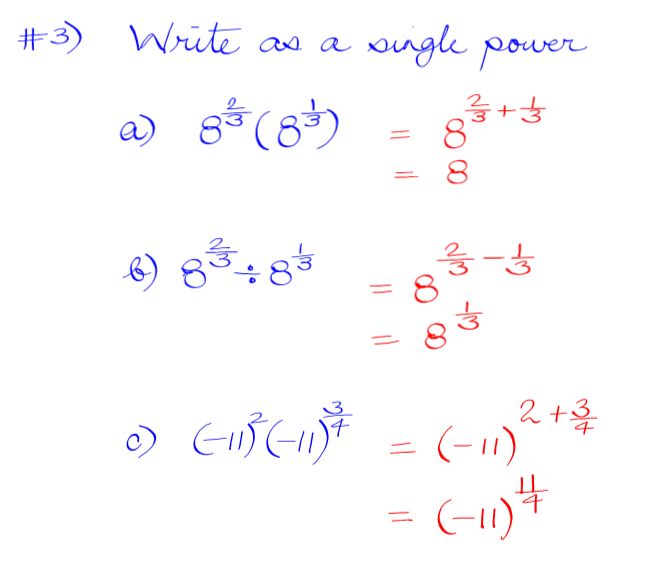 #3) Write as a single power
a) 8^(2/3) (8^(1/3)) = 8^(2/3 + 1/3)
= 8
b) 8^(2/3) ÷ 8^(1/3) = 8^(2/3 - 1/3)
= 8^(1/3)
c) (-11)^2 (-11)^(3/4) = (-11)^(2 + 3/4)
= (-11)^(11/4)